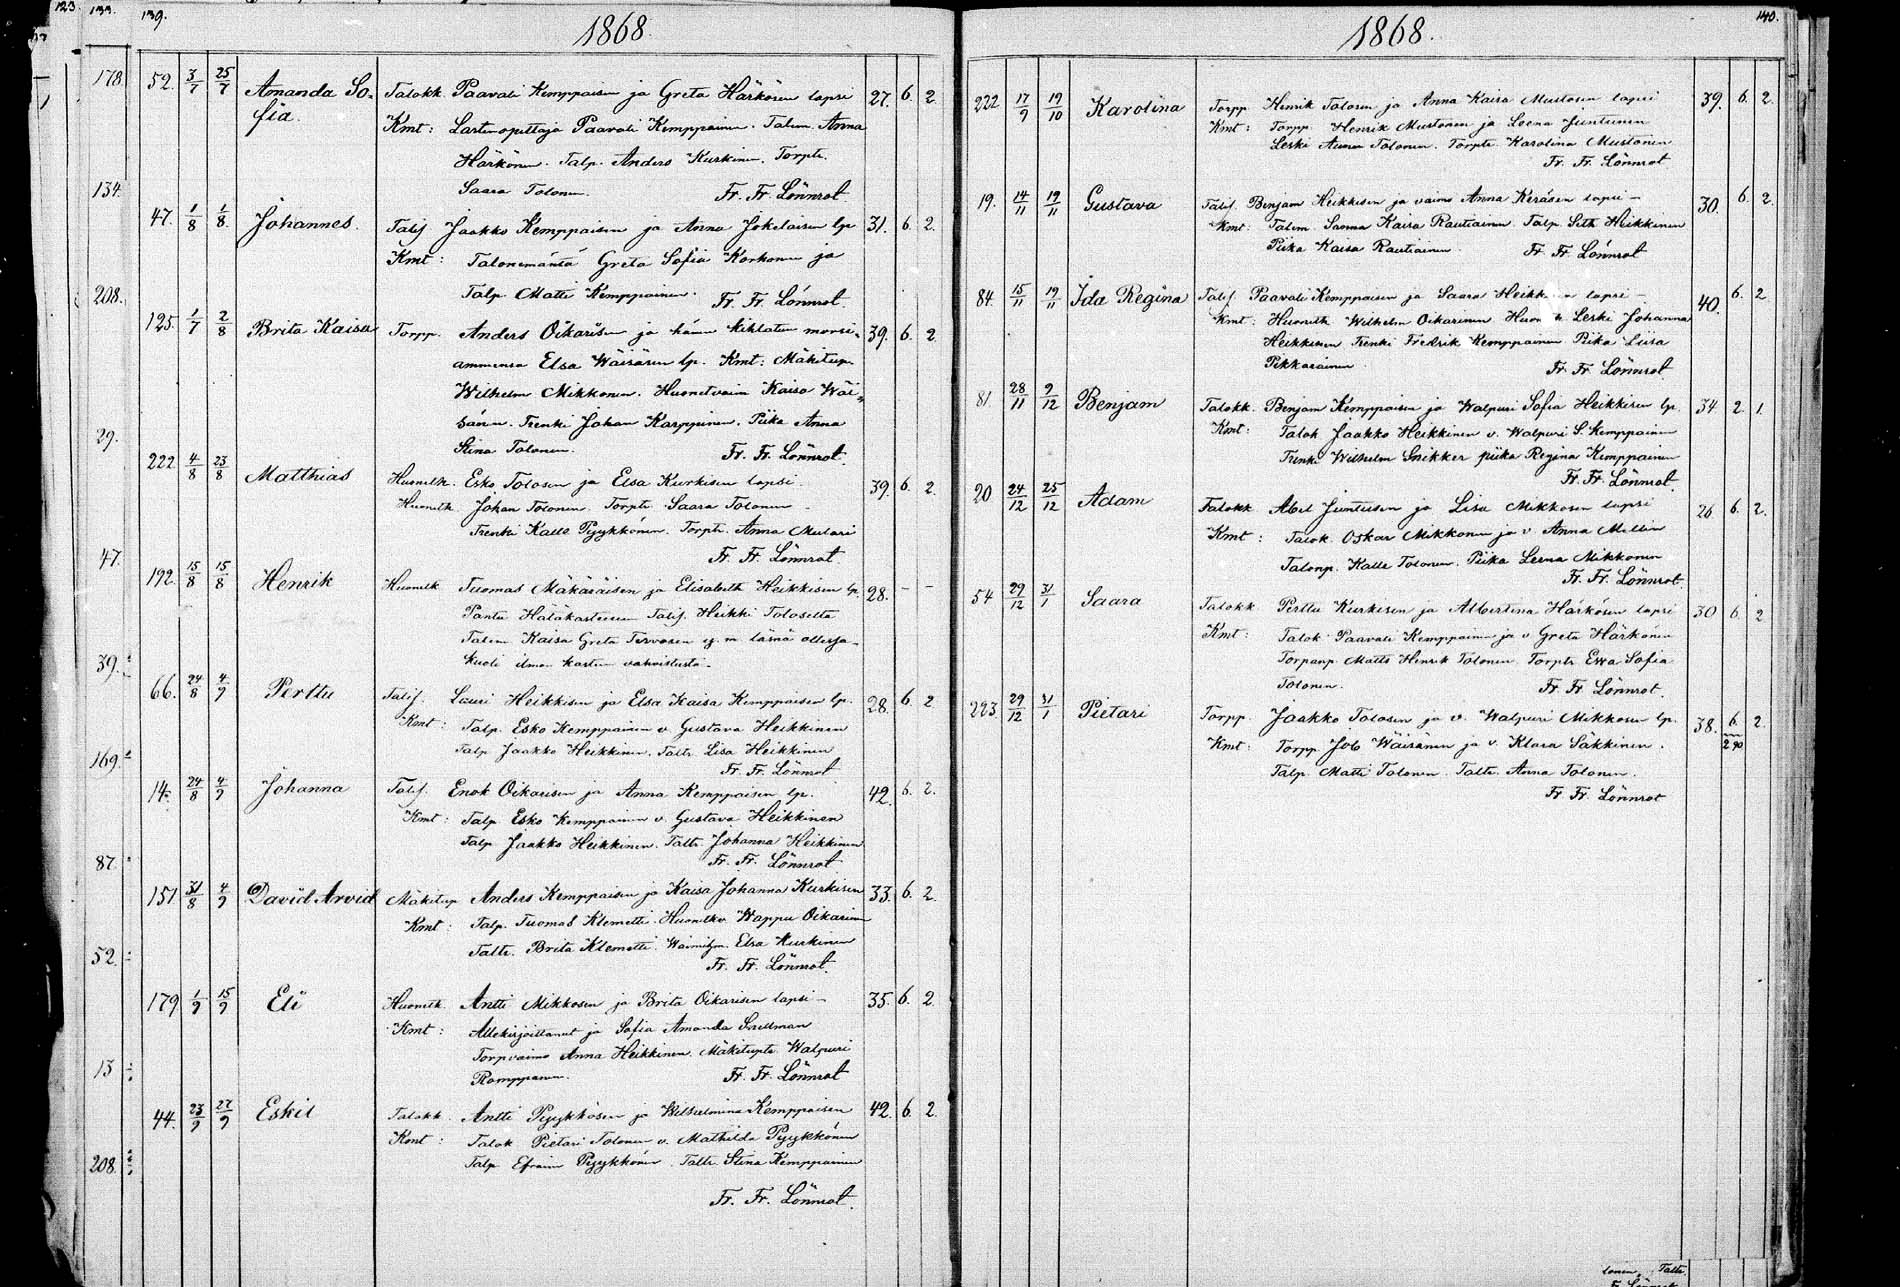 123. 133. 139.
1868.
178. 52. 3/7 25/7 Amanda So- Talokk. Paavali Kemppaisen ja Greta Härkösen lapsi 27. 6. 2.
fia. Kmt: Lastenopettaja Paavali Kemppainen. Talem. Anna
Härkönen. Talp. Anders Kurkinen. Torptr.
134. Saara Tolonen. Fr. Fr. Lönnrot.
47. 1/8 1/8 Johannes. Talij Jaakko Kemppaisen ja Anna Jokelaisen lp 31. 6. 2.
Kmt: Talonemäntä Greta Sofia Korhonen ja
208. Talp. Matti Kemppainen. Fr. Fr. Lönnrot.
125. 1/7 2/8 Brita Kaisa Torpp. Anders Oikarisen ja hänen kihlatun morsi- 39. 6. 2
ammensa Elsa Wäisäsen lp. Kmt: Mäkitup.
Wilhelm Mikkonen. Huonetvaim Kaisa Wäi-
29. sänen. Trenki Johan Karppinen. Piika Anna
Stina Tolonen. Fr. Fr. Lönnrot.
222. 4/8 23/8 Matthias Huonetk. Esko Tolosen ja Elsa Kurkisen lapsi. 39. 6. 2.
Huonetk Johan Tolonen. Torptr Saara Tolonen
Trenki Kalle Pyykkönen. Torptr. Anna Mulari
47. Fr. Fr. Lönnrot.
192. 15/8 15/8 Henrik Huonetk Tuomas Mäkäräisen ja Elisabeth Heikkisen lp. 28. - -
Pantu Hätäkasteeseen Talij. Heikki Toloselta
Talem Kaisa Greta Tervosen y. m. läsnä ollessa
39. kuoli ilman kasteen vahvistusta.
66. 24/8 4/9 Perttu Talij. Lauri Heikkisen ja Elsa Kaisa Kemppaisen lp. 28. 6. 2
Kmt: Talp. Esko Kemppainen v. Gustava Heikkinen
169. Talp Jaakko Heikkinen. Taltr. Lisa Heikkinen
Fr. Fr. Lönnrot
14. 24/8 4/9 Johanna Talij. Enok Oikarisen ja Anna Kemppaisen lp. 42. 6. 2.
Kmt: Talp Esko Kemppainen v. Gustava Heikkinen
Talp Jaakko Heikkinen. Taltr. Johanna Heikkinen
87. Fr. Fr. Lönnrot
151 31/8 4/9 David Arvid Mäkitup Anders Kemppaisen ja Kaisa Johanna Kurkisen 33. 6. 2.
Kmt: Talp. Tuomas Klemetti. Huonetkv. Wappu Oikarinen
52. Taltr. Brita Klemetti. Elsa Kurkinen
Fr. Fr. Lönnrot.
179 1/9 15/9 Eli Huonetk. Antti Mikkosen ja Brita Oikarisen lapsi - 35. 6. 2.
Kmt: Allekirjoittanut ja Sofia Amanda Snellman
13 Torpvaimo Anna Heikkinen. Mäkituptr. Walpuri
Romppanen. Fr. Fr. Lönnrot
44. 23/9 27/9 Eskil Talokk. Antti Pyykkösen ja Wilhelmina Kemppaisen 42. 6. 2
Kmt: Talok Pietari Tolonen v. Mathilda Pyykkönen
208. Talp Efraim Pyykkönen. Taltr. Stina Kemppainen
Fr. Fr. Lönnrot.
140.
1868.
222 17/9 19/10 Karolina Torpp Henrik Tolosen ja Anna Kaisa Mustosen lapsi 39. 6. 2.
Kmt: Torpp. Henrik Mustonen ja Leena Juntunen
Leski Anna Tolonen. Torptr. Karolina Mustonen
Fr. Fr. Lönnrot
19. 14/11 19/11 Gustava Talij. Benjam Heikkisen ja vaimo Anna Keräsen lapsi - 30. 6. 2.
Kmt: Talem. Sanna Kaisa Rautiainen Talp Seth Heikkinen
Piika Kaisa Rautiainen. Fr. Fr. Lönnrot
84. 15/11 19/11 Ida Regina Talij. Paavali Kemppaisen ja Saara Heikkisen lapsi - 40. 6. 2
Kmt: Huonetk Wilhelm Oikarinen Leski Johanna
Heikkinen Trenki Fredrik Kemppainen Piika Liisa
Pikkarainen. Fr. Fr. Lönnrot.
81. 28/11 9/12 Benjam Talokk. Benjam Kemppaisen ja Walpuri Sofia Heikkisen lp. 34. 2. 1.
Kmt: Talok Jaakko Heikkinen v. Walpuri S. Kemppainen
Trenki Wilhelm Snikker piika Regina Kemppainen
Fr. Fr. Lönnrot.
20 24/12 25/12 Adam Talokk Abel Juntusen ja Lisa Mikkosen lapsi 26. 6. 2.
Kmt: Talok. Oskar Mikkonen ja v Anna Mellin
Talonp. Kalle Tolonen. Piika Leena Mikkonen
Fr. Fr. Lönnrot
54 29/12 31/1 Saara Talokk. Perttu Kurkisen ja Albertina Härkösen lapsi 30 6. 2
Kmt: Talok Paavali Kemppainen ja v Greta Härkönen
Torpanp Matts Henrik Tolonen. Torptr. Ewa Sofia
Tolonen. Fr. Fr. Lönnrot.
223. 29/12 31/1 Pietari Torpp. Jaakko Tolosen ja v. Walpuri Mikkosen lp. 38. 6. 2.
Kmt: Torpp. Job Wäisänen ja v. Klara Säkkinen. 2 90
Talp. Matti Tolonen. Taltr. Anna Tolonen.
Fr. Fr. Lönnrot
lonen. Taltr.